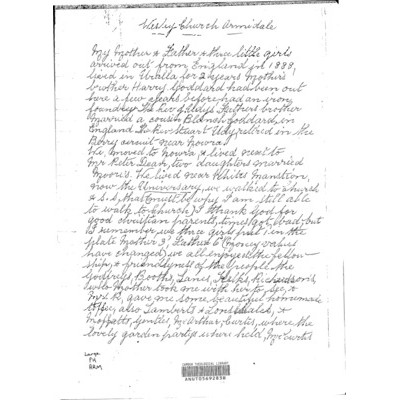 Wesley Church Armidale
My Mother & Father & three little girls
arrived out from England in 1888,
lived in Uralla for 2 years Mothers
brother Harry Goddard had been out
here a few years before, had an iron
foundry. Fathers brother
married a cousin Blanch Goddard, in
England. retired in the
Berry circuit near Nowra.
We moved to Nowra & lived next to
Mr Peter Dear, two daughters married
Moore's. We lived near Whites Mansion,
now the University, we walked to church
& S.S, that must be why I am still able
to walk to church, I thank God for
good christian parents, times got bad, but
I remember we three girls put 1 in the
plate Mother 3, Father 6 (Money values
have changed) we all enjoyed the fellow-
ship & friendlyness of the people, the
Godfreys, Booths, Lanes, Richardson's,
Mother took me with her to see, &
Mrs R, gave me some beautiful homemade
toffee, also Lamberts & Lonsdales, &
Moffatts, Gentles, McArthur, Curtis, where the
lovely garden partys where held, Mrs Curtis
Large
PH
ARM
CAMDEN THEOLOGICAL LIBRARY